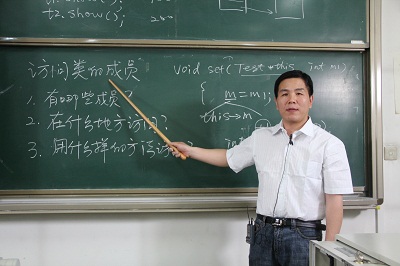 t2.show();
访问类的成员
1. 有哪些成员?
2. 在什么地方访问?
3. 用什么样的方法访问
void set(Test *this, int m1)
{ m=m1;
this→m